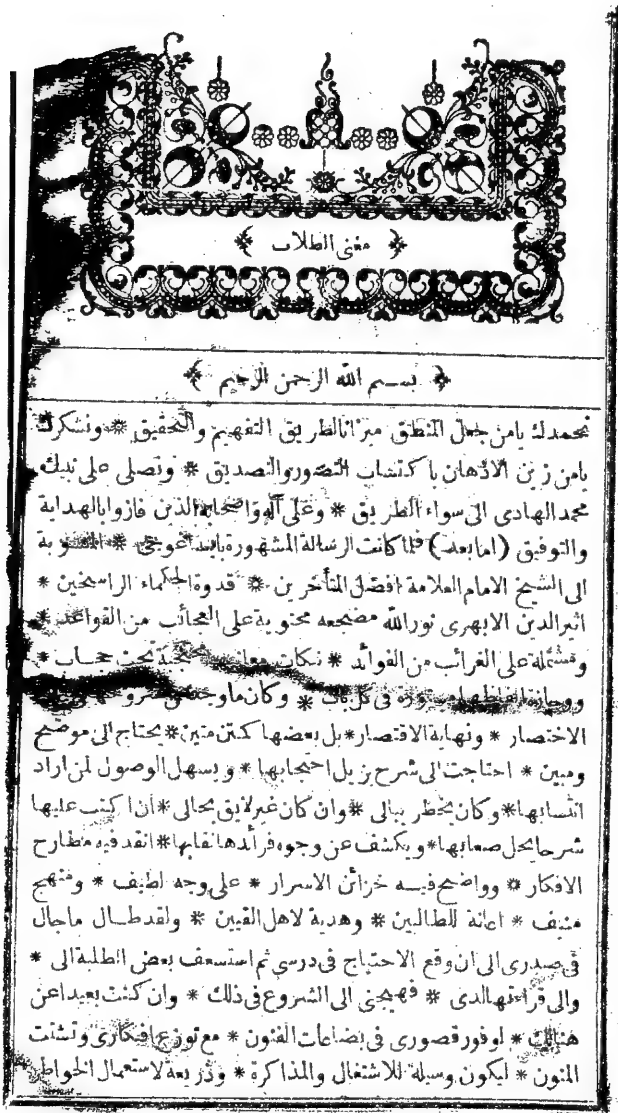 مغنى الطلاب
بســم الله الرحمن الرحيم
نحمدك يامن جعل المنطق ميزانا لطريق التفهيم والتحقيق * ونشكرك
يامن زين الاذهان باكتساب التصور والتصديق * ونصلى على نبيك
محمد الهادى الى سواء الطريق * وعلى آله واصحابه الذين فازوا بالهداية
والتوفيق (امابعد) فلما كانت الرسالة المشهورة بايساغوجى * المنسوبة
الى الشيخ الامام العلامة افضل المتأخرين * قدوة الحكماء الراسخين *
اثير الدين الابهرى نور الله مضجعه محتوية على العجائب من القواعد *
ومشتملة على الغرائب من الفوائد * نكات معان تحت حجاب *
ووجازة فى كل باب * وكان
الاختصار * ونهاية الاقتصار * بل بعضها كمتن متين * يحتاج الى موضح
ومبين * احتاجت الى شرح يزيل احتجابها * ويسهل الوصول لمن اراد
انتسابها * وكان يخطر ببالى * وان كان غير لايق بحالى * ان اكتب عليها
شرحا يحل صعابها * ويكشف عن وجوه فرائدها نقابها * انقد فيه مطارح
الافكار * وواضح فيـه خزائن الاسرار * على وجه لطيف * ومنهج
منيف * اعانة للطالبين * وهدية لاهل اليقين * ولقد طـال ماجال
فى صدرى الى ان وقع الاحتياج فى درسى ثم استسعف بعض الطلبة الى *
والى قرائتها لدى * فهيجنى الى الشروع فى ذلك * وان كنت بعيدا عن
هنالك * لوفور قصورى فى بضاعات الفنون * مع توزع افكارى وتشتت
المنون * ليكون وسيلة للاشتغال والمذاكرة * وذريعة لاستعمال الخواطر